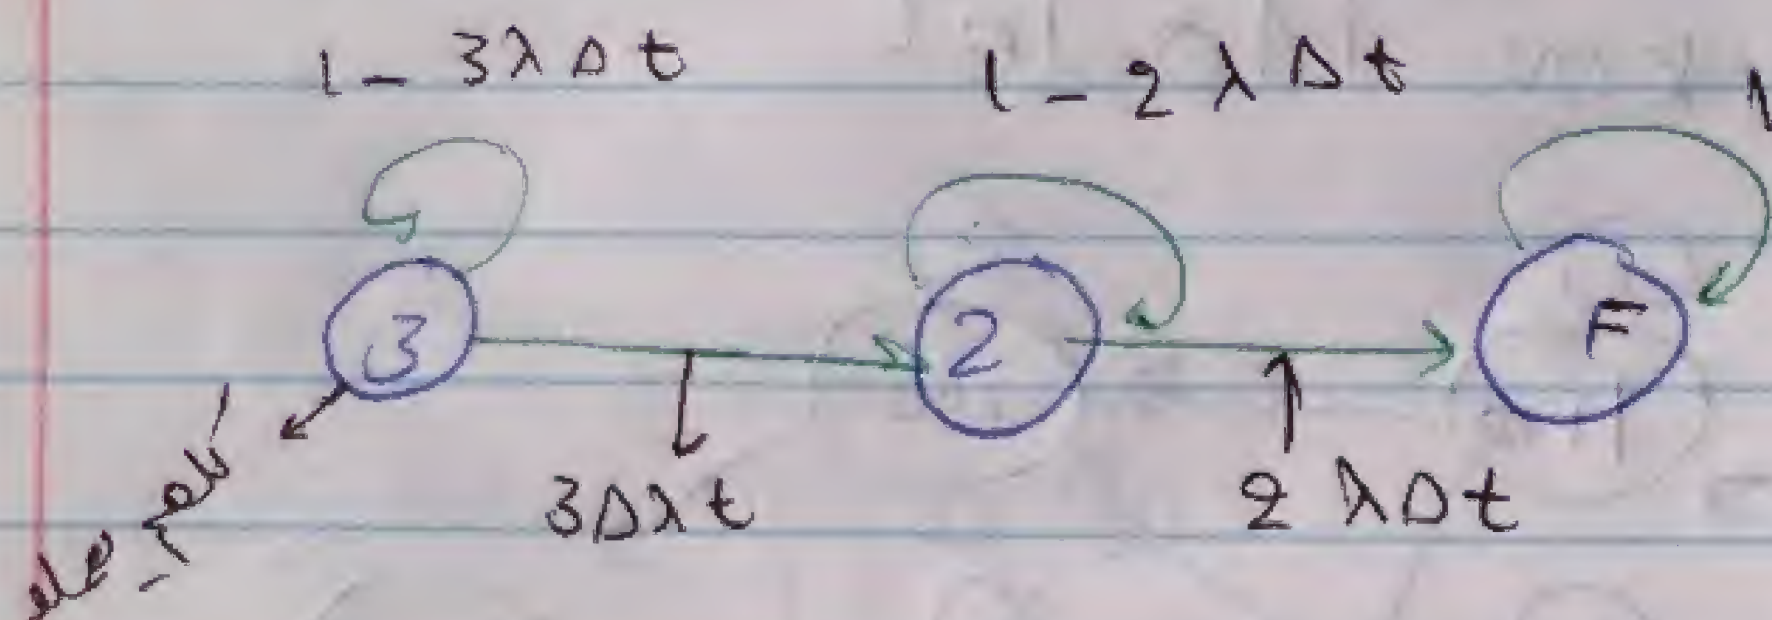 1 - 3λΔt 1 - 2λΔt 1
3 2 F
3Δλt 2λΔt